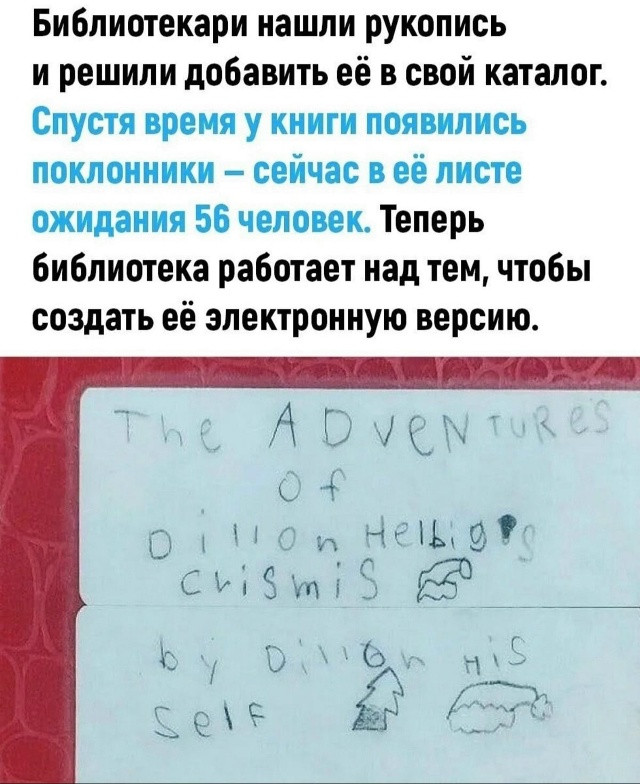 Библиотекари нашли рукопись
и решили добавить её в свой каталог.
Спустя время у книги появились
поклонники – сейчас в её листе
ожидания 56 человек. Теперь
библиотека работает над тем, чтобы
создать её электронную версию.
The ADVeNTuRes
of
Dillon Helbig's
crismis
by Dillon His
self